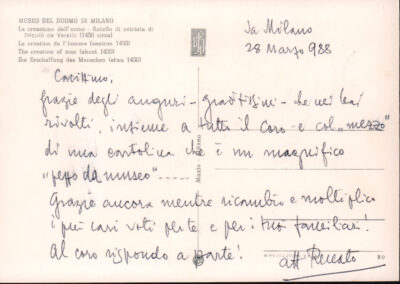 MUSEO DEL DUOMO DI MILANO
La creazione dell'uomo - Antello di vetriata di
Nicolò da Varallo (1450 circa)
La création de l'homme (environ 1450)
The creation of man (about 1450)
Die Erschaffung des Menschen (etwa 1450)
Da Milano
28 Marzo 988
Carissimo,
grazie degli auguri - graditissimi - che mi hai
rivolti, insieme a tutto il coro e col „mezzo"
di una cartolina che è un magnifico
„pezzo da museo" .....
Grazie ancora mentre ricambio e moltiplico
i più cari voti per te e per i tuoi familiari!
Al coro rispondo a parte!
aff